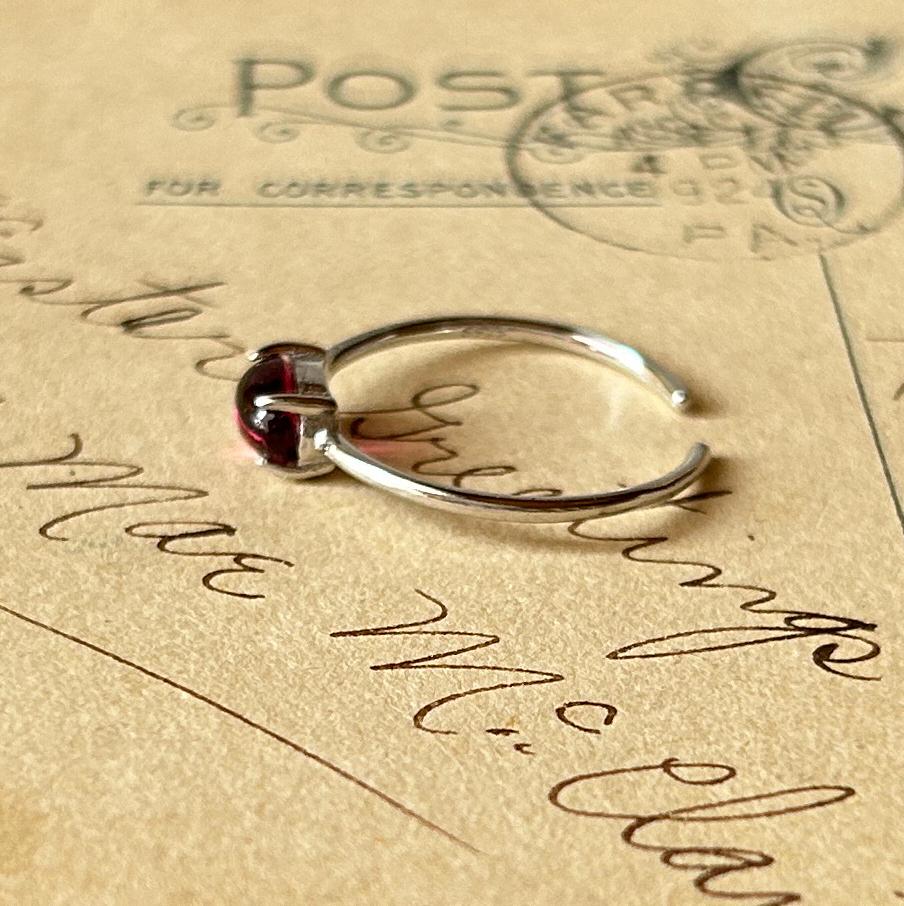 POST
FOR CORRESPONDENCE
4 PM
PA.
Easter
Greetings
Mae Mc